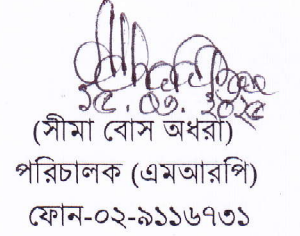 ১৫.০১.২০২৫
(সীমা বোস অধরা)
পরিচালক (এমআরপি)
ফোন-০২-৯১১৬৭৩১